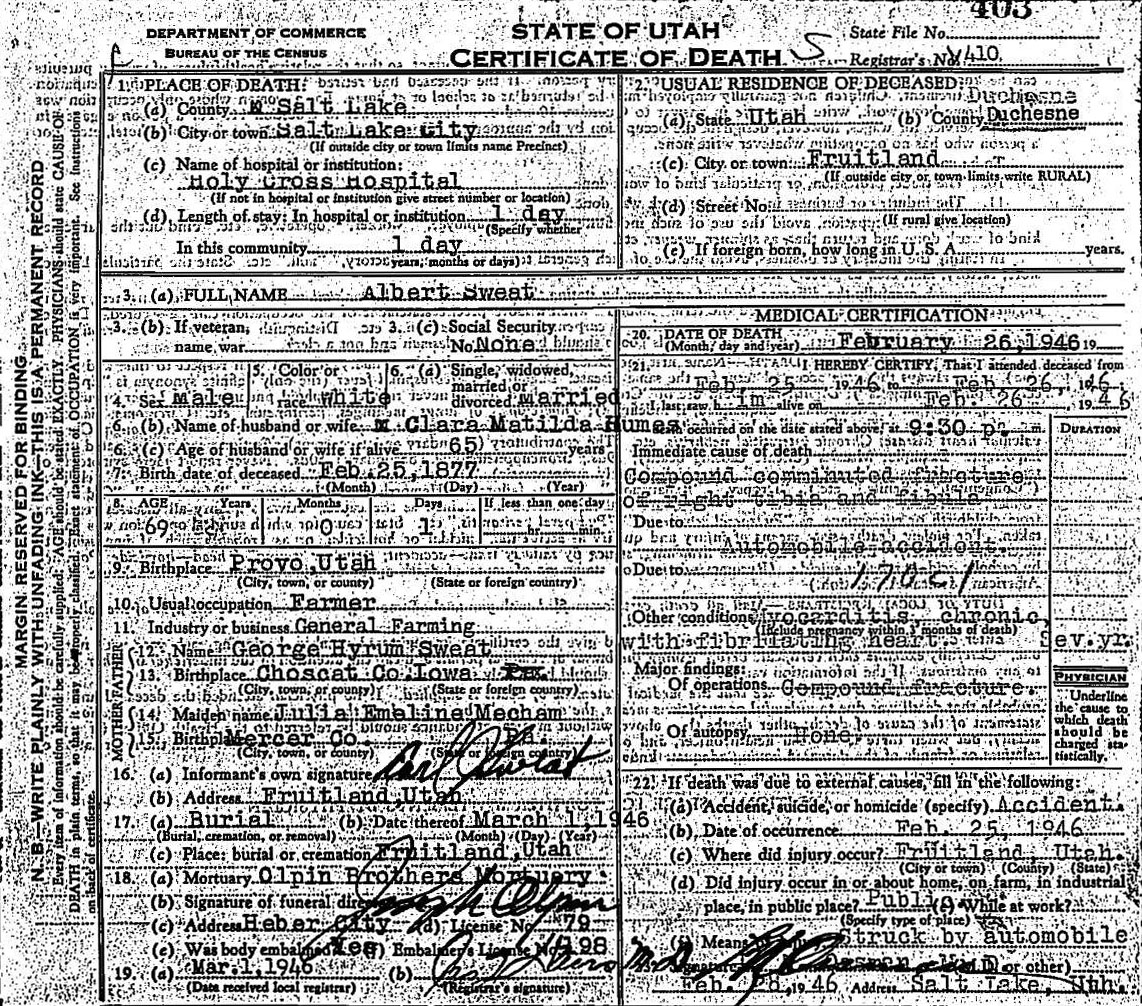 403
DEPARTMENT OF COMMERCE
BUREAU OF THE CENSUS
STATE OF UTAH
CERTIFICATE OF DEATH
State File No.
Registrar's No. 410
MARGIN RESERVED FOR BINDING
N. B.—WRITE PLAINLY WITH UNFADING INK—THIS IS A PERMANENT RECORD
Every item of information should be carefully supplied. AGE should be stated EXACTLY. PHYSICIANS should state CAUSE OF
DEATH in plain terms, so that it may be properly classified. Exact statement of OCCUPATION is very important. See instructions
on back of certificate.
1. PLACE OF DEATH:
(a) County Salt Lake
(b) City or town Salt Lake City
(If outside city or town limits name Precinct)
(c) Name of hospital or institution:
Holy Cross Hospital
(If not in hospital or institution give street number or location)
(d) Length of stay: In hospital or institution 1 day
(Specify whether
In this community 1 day
years, months or days)
2. USUAL RESIDENCE OF DECEASED:
Duchesne
(a) State Utah (b) County Duchesne
(c) City or town Fruitland
(If outside city or town limits write RURAL)
(d) Street No.
(If rural give location)
(e) If foreign born, how long in U. S. A. years.
3. (a) FULL NAME Albert Sweat
3. (b) If veteran, name war
3. (c) Social Security No. None
4. Sex Male
5. Color or race White
6. (a) Single, widowed, married or divorced married
6. (b) Name of husband or wife Clara Matilda Humes
6. (c) Age of husband or wife if alive 65 years
7. Birth date of deceased Feb.25,1877
(Month) (Day) (Year)
8. AGE Years Months Days If less than one day
69 0 1 hr. min.
9. Birthplace Provo,Utah
(City, town, or county) (State or foreign country)
10. Usual occupation Farmer
11. Industry or business General Farming
FATHER
12. Name George Hyrum Sweat
13. Birthplace Choscat Co.Iowa
(City, town, or county) (State or foreign country)
MOTHER
14. Maiden name Julia Emeline Mecham
15. Birthplace Mercer Co. Pa.
(City, town, or county) (State or foreign country)
16. (a) Informant's own signature Carl Sweat
(b) Address Fruitland,Utah
17. (a) Burial (b) Date thereof March 1,1946
(Burial, cremation, or removal) (Month) (Day) (Year)
(c) Place: burial or cremation Fruitland,Utah
18. (a) Mortuary Olpin Brothers Mortuary
(b) Signature of funeral director
(c) Address Heber City (d) License No. 79
(e) Was body embalmed Yes (f) Embalmer's License No. 198
19. (a) Mar.1,1946 (b)
(Date received local registrar) (Registrar's signature)
MEDICAL CERTIFICATION
20. DATE OF DEATH
(Month, day and year) February 26,1946 19
21. I HEREBY CERTIFY, That I attended deceased from
Feb. 25 1946 Feb. 26, 1946.
I last saw h im alive on Feb. 26 , 1946
occurred on the date stated above, at 9:30 p. m.
DURATION
Immediate cause of death
Compound comminuted fracture
of right tibia and fibula
Due to
Automobile accident.
Due to
170c1
Other conditions Myocarditis, chronic,
(Include pregnancy within 3 months of death)
with fibrillating heart. Sev.yr.
Major findings:
Of operations Compound fracture.
Of autopsy None,
PHYSICIAN
Underline
the cause to
which death
should be
charged sta-
tistically.
22. If death was due to external causes, fill in the following:
(a) Accident, suicide, or homicide (specify) Accident.
(b) Date of occurrence Feb. 25, 1946
(c) Where did injury occur? Fruitland, Utah.
(City or town) (County) (State)
(d) Did injury occur in or about home, on farm, in industrial
place, in public place? Public (e) While at work?
(Specify type of place)
(f) Means of Struck by automobile
M.D. or other)
Feb. 28, 1946 Address Salt Lake, Utah.